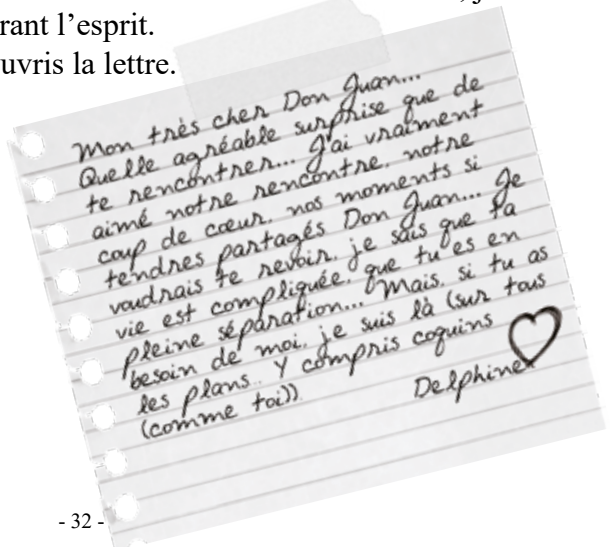 rant l’esprit.
uvris la lettre.
Mon très cher Don Juan...
Quelle agréable surprise que de
te rencontrer... J'ai vraiment
aimé notre rencontre, notre
coup de cœur, nos moments si
tendres partagés Don Juan... Je
voudrais te revoir, je sais que ta
vie est compliquée, que tu es en
pleine séparation... Mais, si tu as
besoin de moi, je suis là (sur tous
les plans.. Y compris coquins
(comme toi))
Delphine
- 32 -